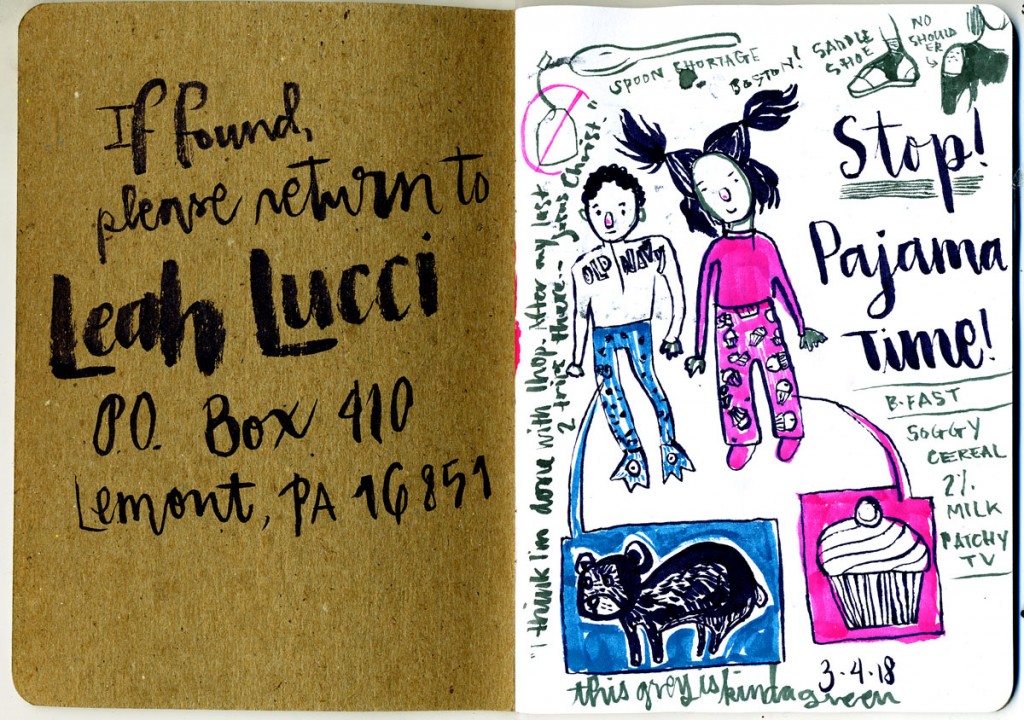 If found,
please return to
Leah Lucci
P.O. Box 410
Lemont, PA 16851
SPOON SHORTAGE
BOSTON!
SADDLE
SHOE
NO
SHOULD
ER
Stop!
Pajama
Time!
OLD NAVY
"I think I'm done with Ihop. After my last
2 trips there – Jesus Christ."
B-FAST
SOGGY
CEREAL
2%
MILK
PATCHY
TV
3-4-18
this grey is kinda green